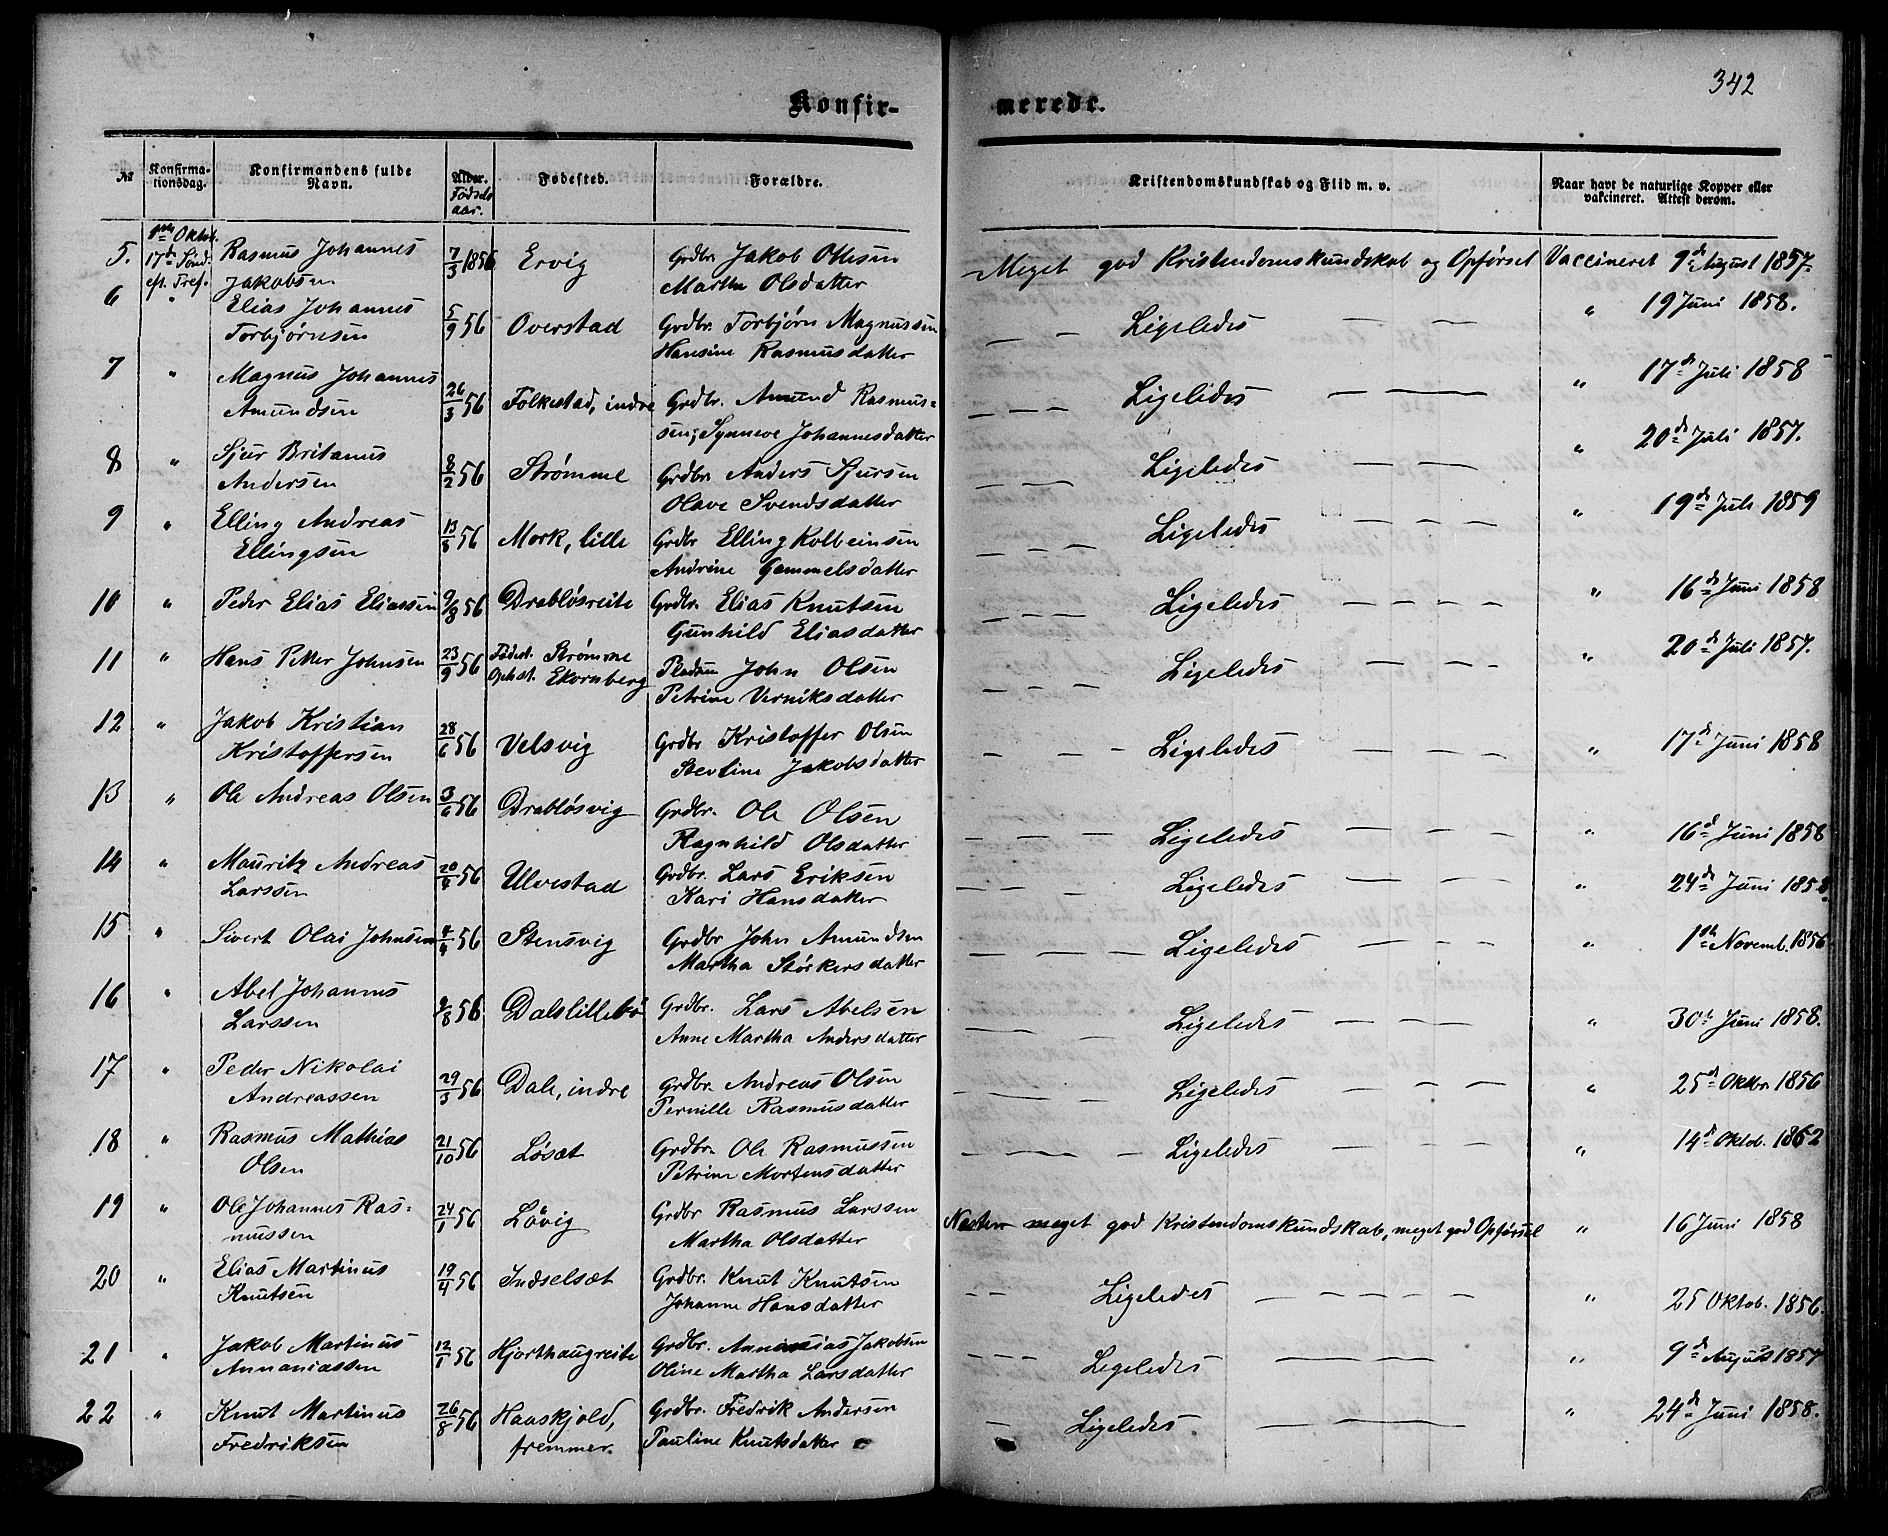 342
Konfir- merede.
№ Konfirma-tionsdag. Konfirmandens fulde Navn. Alder. Fødsels aar. Fødested. Forældre. Kristendomskundskab og Flid m. v. Naar havt de naturlige Kopper eller vakcineret. Attest derom.
5. 1ste Oktob. 17de Sønd. eft. Tref. Rasmus Johannes Jakobsen 7/3 1856 Ervig Grdbr. Jakob Olsen Martha Olsdatter Meget god Kristendomskundskab og Opførsel Vaccineret 9d August 1857
6 " Elias Johannes Torbjørnsen 5/9 56 Overstad Grdbr. Torbjørn Magnussen Hansine Rasmusdatter — — Ligeledes — — " 19 Juni 1858.
7 " Magnus Johannes Amundsen 26/3 56 Folkestad, indre Grdbr. Amund Rasmus= sen, Synneve Johannesdatter — — — Ligeledes — — — — " 17d Juli 1858
8 " Sjur Britanus Andersen 8/2 56 Strømme Grdbr. Anders Sjursen Olave Svendsdatter — — — Ligeledes — — " 20d Juli 1857.
9 " Elling Andreas Ellingsen 13/8 56 Mork, lille Grdbr Elling Kolbeinsen Andrine Gammelsdatter — — — Ligeledes — — — — " 19d Juli 1859
10 " Peder Elias Eliassen 9/8 56 Drabløsreite Grdbr. Elias Knutsen Gunhild Eliasdatter — — — Ligeledes — — — — " 16d Juni 1858
11 " Hans Petter Johnsen 23/9 56 Fødest. Strømme Ophst. Ekornberg Pladsm John Olsen Petrine Verniksdatter — — — Ligeledes — — — " 20d Juli 1857.
12 " Jakob Kristian Kristoffersen 28/6 56 Velsvig Grdbr Kristoffer Olsen Sevline Jakobsdatter — — — Ligeledes — — — — " 17d Juni 1858
13 " Ole Andreas Olsen 3/6 56 Drabløsvig Grdbr. Ole Olsen Ragnhild Olsdatter — — — Ligeledes — — — — " 16d Juni 1858
14 " Mauritz Andreas Larssen 20/4 56 Ulvestad Grdbr. Lars Eriksen Kari Hansdatter — — — Ligeledes — — — " 24d Juni 1858.
15 " Sivert Olai Johnsen 56 Stensvig Grdbr John Amundsen Martha Størkersdatter — — — — Ligeledes — — — " 1ste Novemb. 1856
16 " Abel Johannes Larssen 9/8 56 Dalslillebø Grdbr. Lars Abelsen Anne Martha Andersdatter — — Ligeledes — — — " 30te Juni 1858.
17 " Peder Nikolai Andreassen 29/3 56 Dale, indre Grdbr. Andreas Olsen Pernille Rasmusdatter — — — Ligeledes — — — — " 25d Oktbr 1856
18 " Rasmus Mathias Olsen 21/10 56 Løsæt Grdbr. Ole Rasmussen Petrine Mortensdatter — — — — Ligeledes — — — " 14d Oktob. 1862
19 " Ole Johannes Ras= mussen 24/1 56 Løvig Grdbr Rasmus Larssen Martha Olsdatter Næsten meget god Kristendomskundskab, meget god Opførsel " 16 Juni 1858
20 " Elias Martinus Knutsen 19/4 56 Indselsæt Grdbr. Knut Knutsen Johanne Hansdatter — — Ligeledes — — — — — " 25 Oktob. 1856.
21 " Jakob Martinus Annaniassen 12/1 56 Hjorthaugreite Grdbr. Annanias Jakobsen Oline Martha Larsdatter — — — Ligeledes — — — " 9d August 1857
22 " Knut Martinus Fredriksen 26/8 56 Haaskjold, fremmer. Grdbr. Fredrik Andersen Pauline Knutsdatter — Ligeledes. — — " 24d Juni 1858.